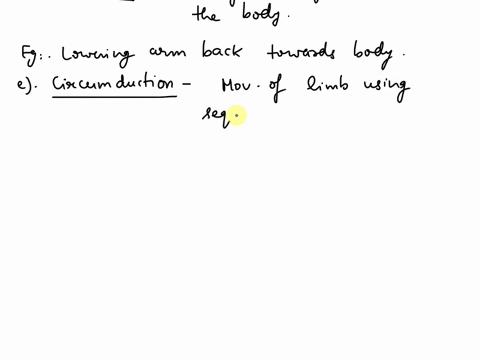 the body.
Eg:. Lowering arm back towards body.
e). Circumduction - Mov. of limb using
seq.